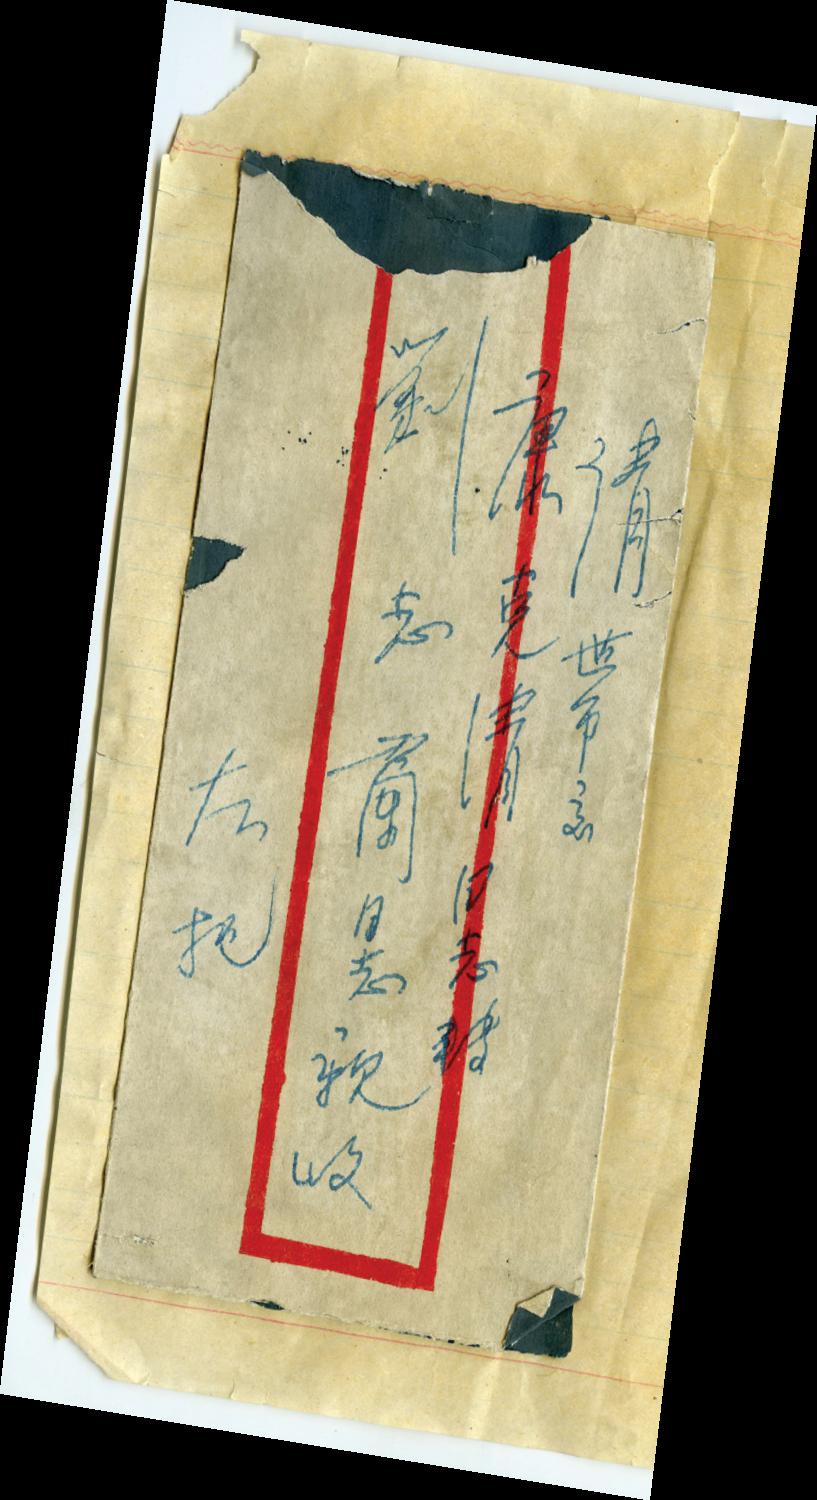 請世
康克清同志轉
劉志蘭同志親收
左托